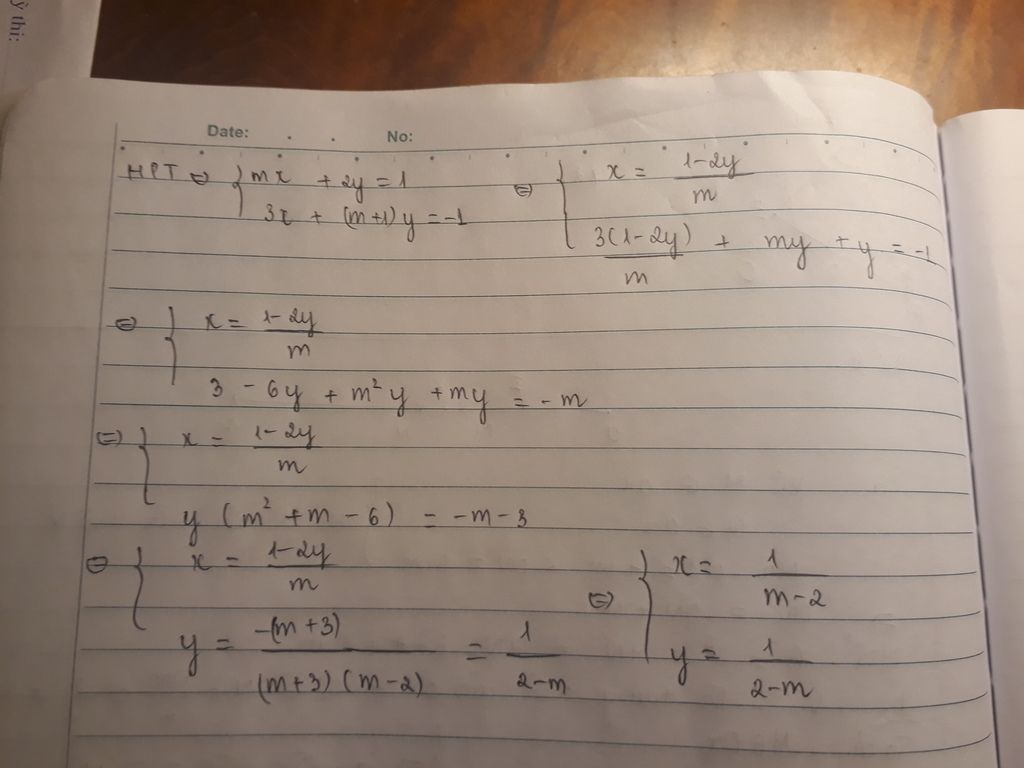 ỳ thi:
Date: No:
HPT ⇔ { mx + 2y = 1
3x + (m+1)y = -1
⇔ { x = (1-2y)/m
3(1-2y)/m + my + y = -1
⇔ { x = (1-2y)/m
3 - 6y + m²y + my = -m
⇔ { x = (1-2y)/m
y (m² + m - 6) = -m - 3
⇔ { x = (1-2y)/m
y = -(m+3)/((m+3)(m-2)) = 1/(2-m)
⇔ { x = 1/(m-2)
y = 1/(2-m)